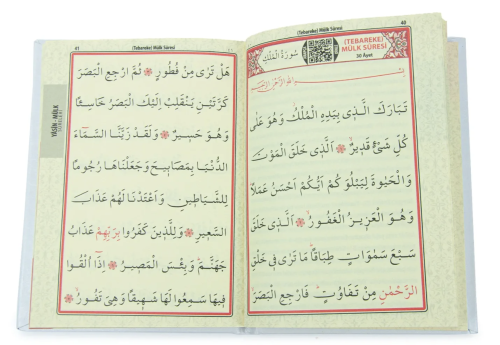 40
(Tebareke) Mülk Sûresi
(TEBAREKE)
MÜLK SÛRESİ
30 Âyet
سُورَةُ الْمُلْكِ
تَبَارَكَ الَّذ۪ي بِيَدِهِ الْمُلْكُ وَهُوَ عَلٰى
كُلِّ شَيْءٍ قَد۪يرٌ ۞ اَلَّذ۪ي خَلَقَ الْمَوْتَ
وَالْحَيٰوةَ لِيَبْلُوَكُمْ اَيُّكُمْ اَحْسَنُ عَمَلًا
وَهُوَ الْعَز۪يزُ الْغَفُورُ ۞ اَلَّذ۪ي خَلَقَ
سَبْعَ سَمٰوَاتٍ طِبَاقًا مَا تَرٰى ف۪ي خَلْقِ
الرَّحْمٰنِ مِنْ تَفَاوُتٍ فَارْجِعِ الْبَصَرَ
41
(Tebareke) Mülk Sûresi
YÂSİN - MÜLK
هَلْ تَرٰى مِنْ فُطُورٍ ۞ ثُمَّ ارْجِعِ الْبَصَرَ
كَرَّتَيْنِ يَنْقَلِبْ اِلَيْكَ الْبَصَرُ خَاسِئًا
وَهُوَ حَس۪يرٌ ۞ وَلَقَدْ زَيَّنَّا السَّمَاءَ
الدُّنْيَا بِمَصَاب۪يحَ وَجَعَلْنَاهَا رُجُومًا
لِلشَّيَاط۪ينِ وَاَعْتَدْنَا لَهُمْ عَذَابَ
السَّع۪يرِ ۞ وَلِلَّذ۪ينَ كَفَرُوا بِرَبِّهِمْ عَذَابُ
جَهَنَّمَ وَبِئْسَ الْمَص۪يرُ ۞ اِذَا اُلْقُوا
ف۪يهَا سَمِعُوا لَهَا شَه۪يقًا وَهِيَ تَفُورُ ۞